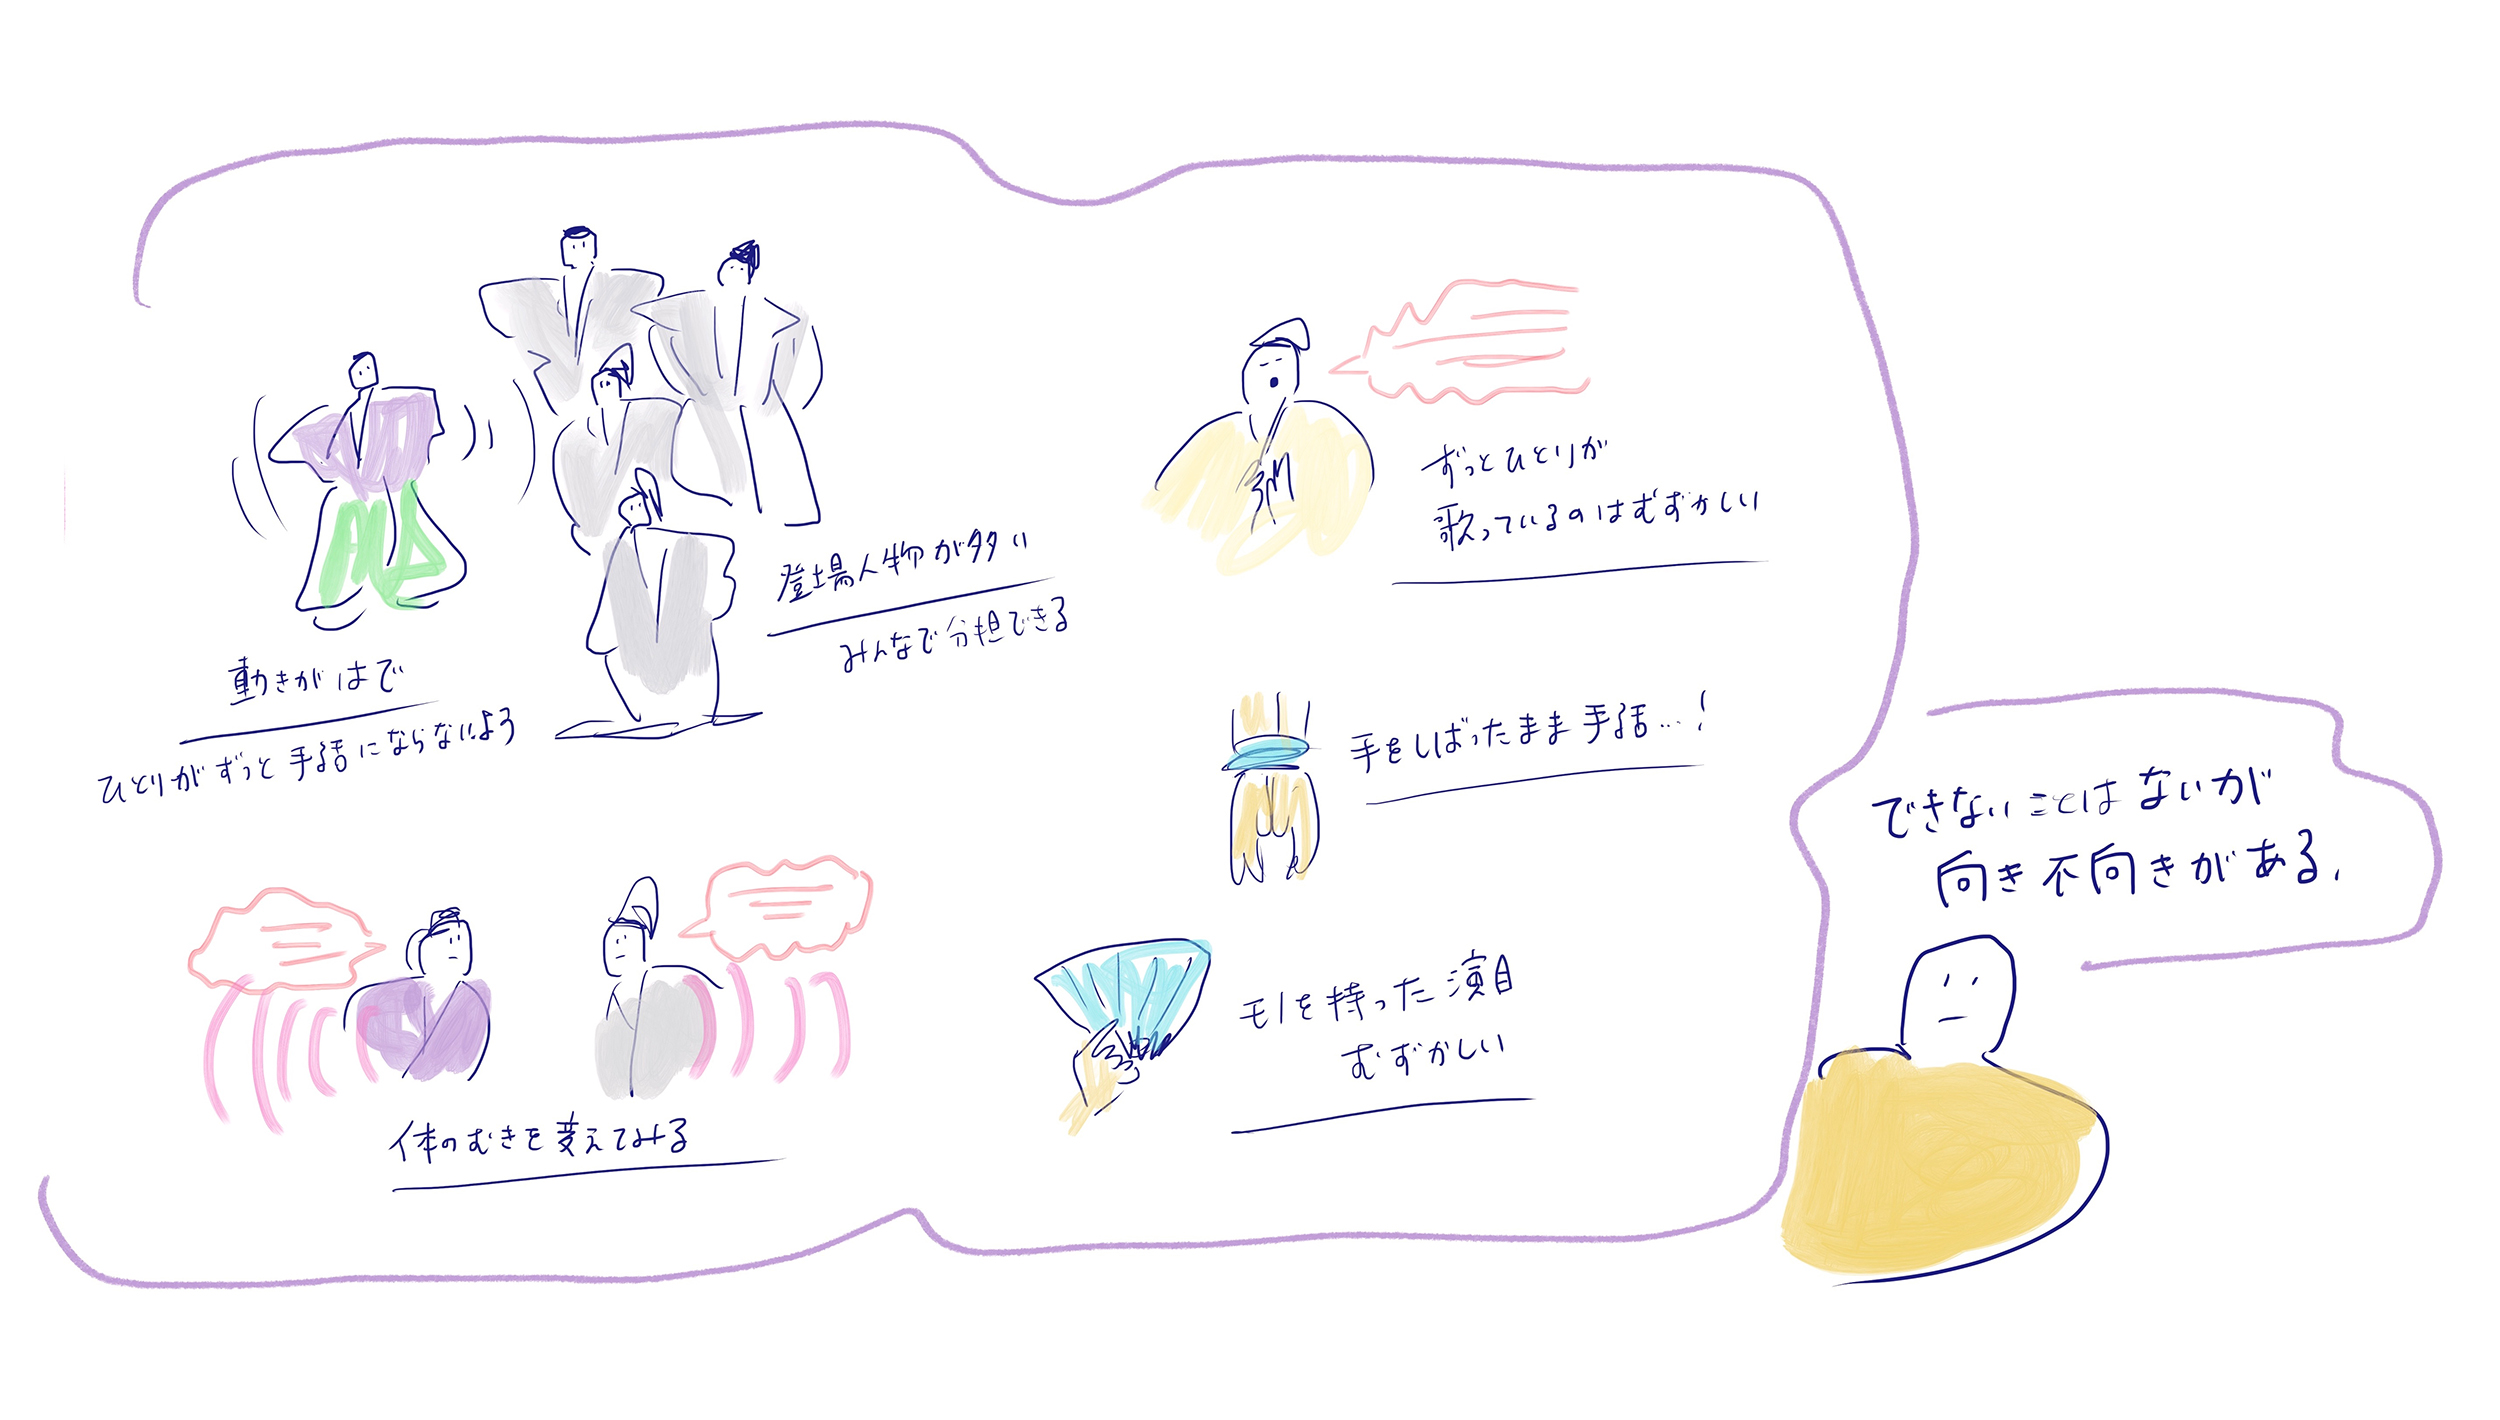 動きがはで
ひとりがずっと手話にならないよう
登場人物が多い
みんなで分担できる
体のむきを変えてみる
ずっとひとりが
歌っているのはむずかしい
手をしばったまま手話…!
モノを持った演目
むずかしい
できないことはないが
向き不向きがある、